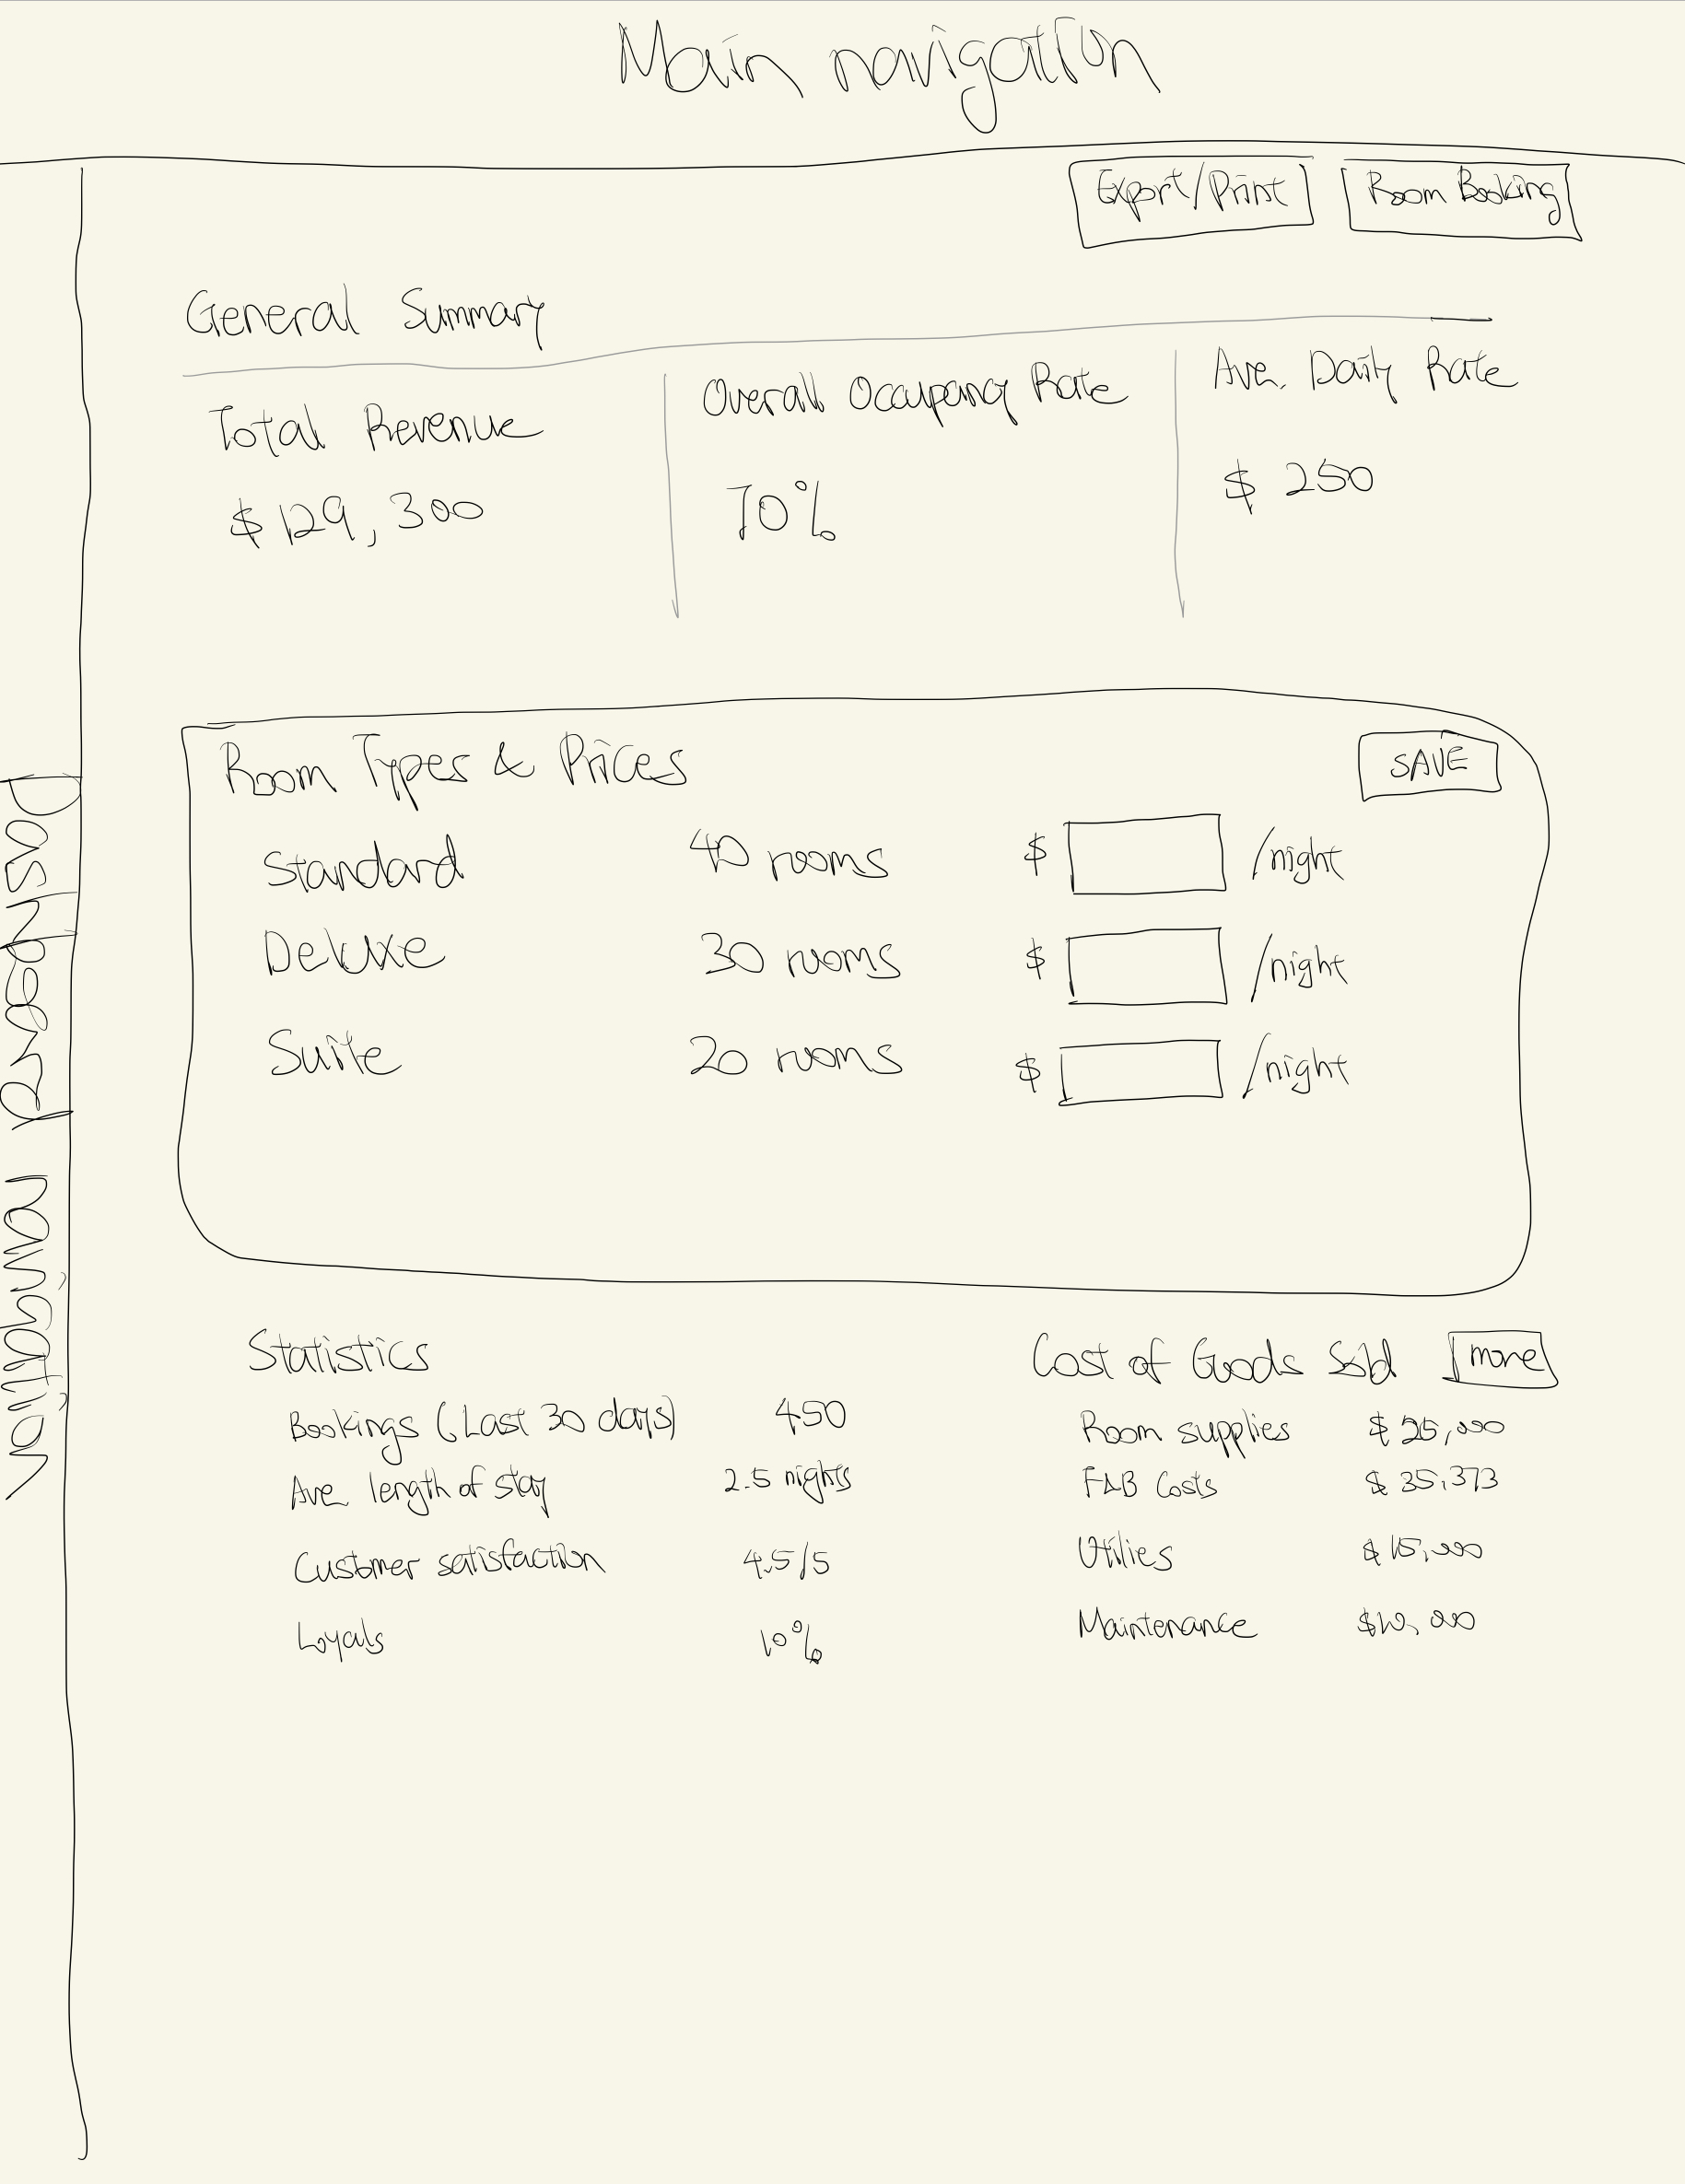 Main navigation
Export/Print
Room Booking
General Summary
Total Revenue
$ 129,300
Overall Occupancy Rate
70%
Ave. Daily Rate
$ 250
Dashboard navigation
Room Types & Prices
SAVE
Standard 40 rooms $ /night
Deluxe 30 rooms $ /night
Suite 20 rooms $ /night
Statistics
Bookings (Last 30 days) 450
Ave length of stay 2.5 nights
Customer satisfaction 4.5/5
Loyals 10%
Cost of Goods Sold
more
Room supplies $ 25,000
F&B Costs $ 35,373
Utilies $ 15,000
Maintenance $10,000